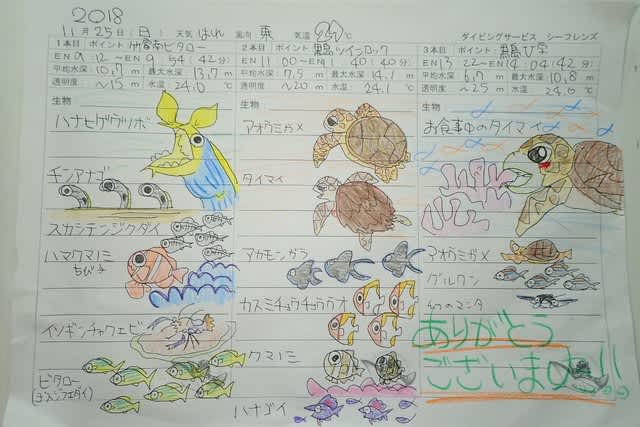 2018
11月25日(日) 天気 はれ 風向 東 気温 ℃
ダイビングサービス シーフレンズ
1本目 ポイント: ビタロー
EN 9:12 ~EN 9:54 (42分)
平均水深: 10.7m 最大水深: 13.7m
透明度 ~15m 水温: 24.0℃
生物
ハナヒゲウツボ
チンアナゴ
スカシテンジクダイ
ハマクマノミ
ちび子
イソギンチャクエビ
ビタロー
2本目 ポイント: ツインロック
EN 11:00~EN 11:40 (40分)
平均水深: 7.5m 最大水深: 14.1m
透明度 ~20m 水温: 24.1℃
生物
アオウミガメ
タイマイ
アカモンガラ
カスミチョウチョウウオ
クマノミ
ハナゴイ
3本目 ポイント: U字
EN 13:22~EN 14:04 (42分)
平均水深: 6.7m 最大水深: 10.8m
透明度 ~25m 水温: 24.0℃
生物
お食事中のタイマイ
アオウミガメ
グルクン
幻のマンタ
ありがとう
ございました!!